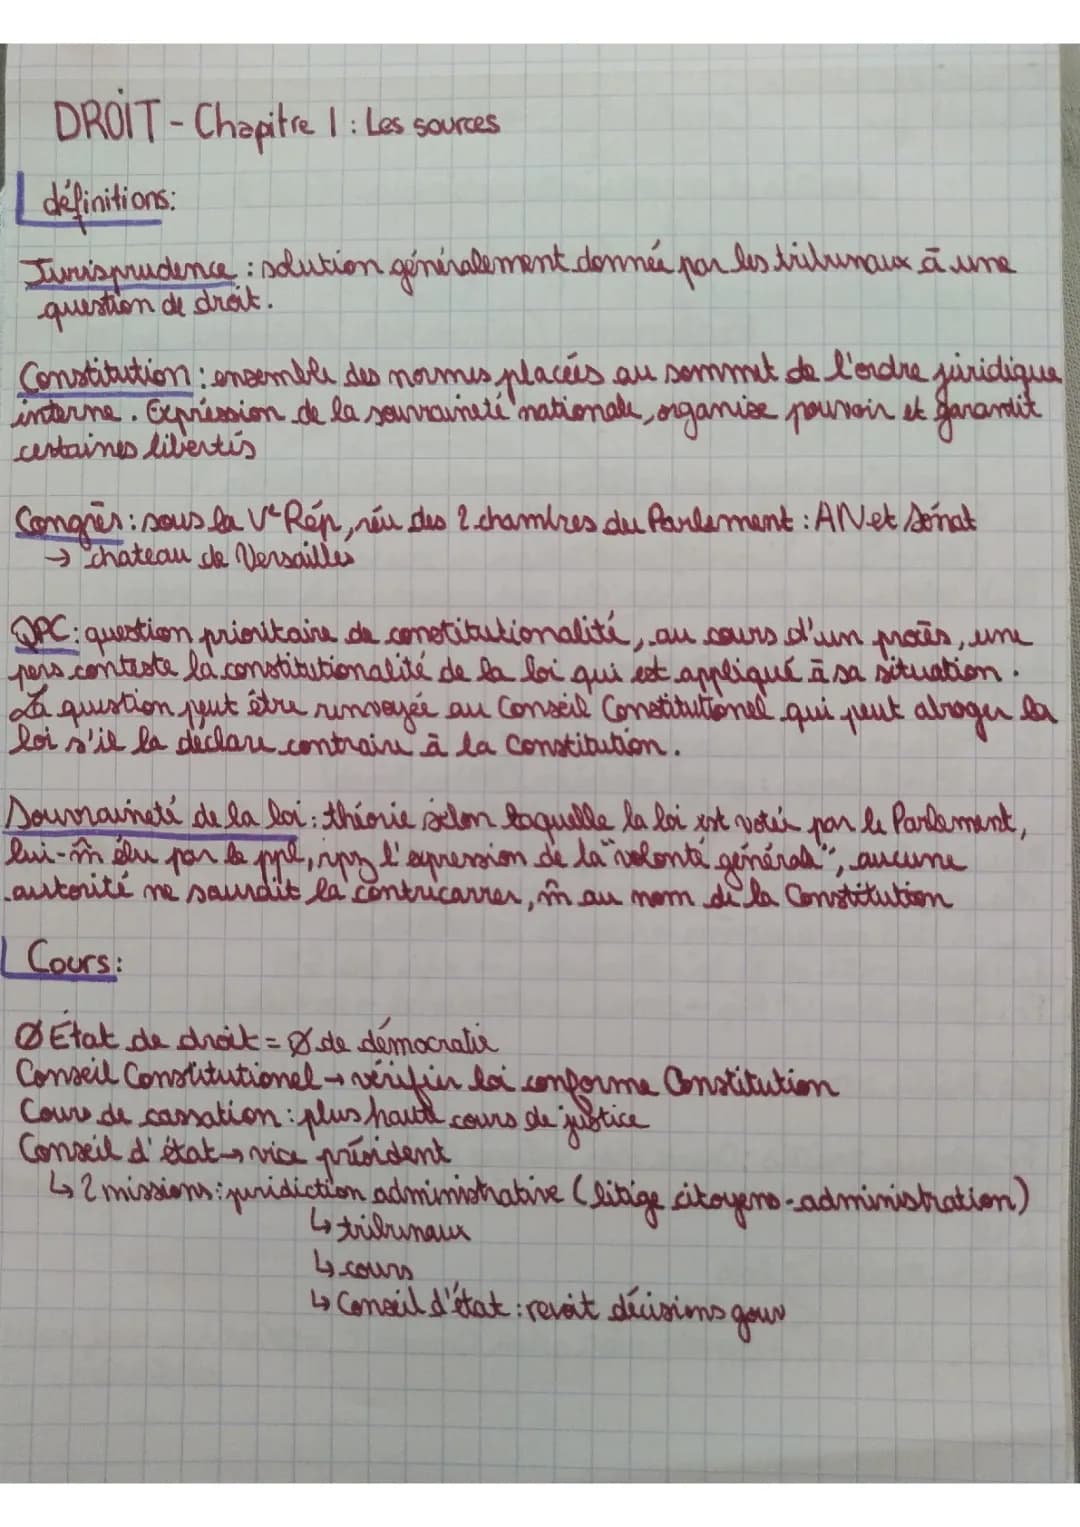 DROIT - Chapitre 1 : Les sources
définitions:
Jurisprudence : solution généralement donnée par les tribunaux à une
question de droit.
Constitution : ensemble des normes placées au sommet de l'ordre juridique
interne. Expression de la souvraineté nationale, organise pouvoir et garantit
certaines libertés
Congrès : sous la Ve Rép, réu des 2 chambres du Parlement : AN et Sénat
→ chateau de Versailles
QPC : question prioritaire de constitutionalité, au cours d'un procès, une
pers conteste la constitutionalité de la loi qui est appliqué à sa situation.
La question peut être renvoyée au Conseil Constitutionel qui peut abroger la
loi s'il la déclare contraire à la Constitution.
Souvraineté de la loi : théorie selon laquelle la loi est votée par le Parlement,
lui-m̂ élu par le ppl, rpz l'expression de la "volonté générale", aucune
autorité ne saurait la contrecarrer, m̂ au nom de la Constitution
Cours :
Ø État de droit = Ø de démocratie
Conseil Constitutionel → vérifier loi conforme Constitution
Cours de cassation : plus haute cours de justice
Conseil d'état → vice président
↳ 2 missions : juridiction administrative (litige citoyens - administration)
↳ tribunaux
↳ cours
↳ Conseil d'état : revoit décisions gouv